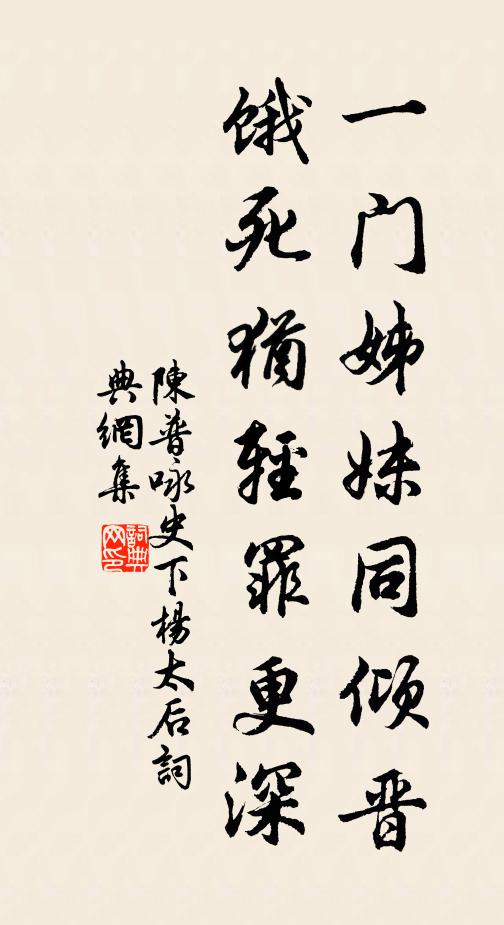 一门姊妹同倾晋
饿死犹轻罪更深
陳普咏史下楊太后詞
典網集
詞典网印